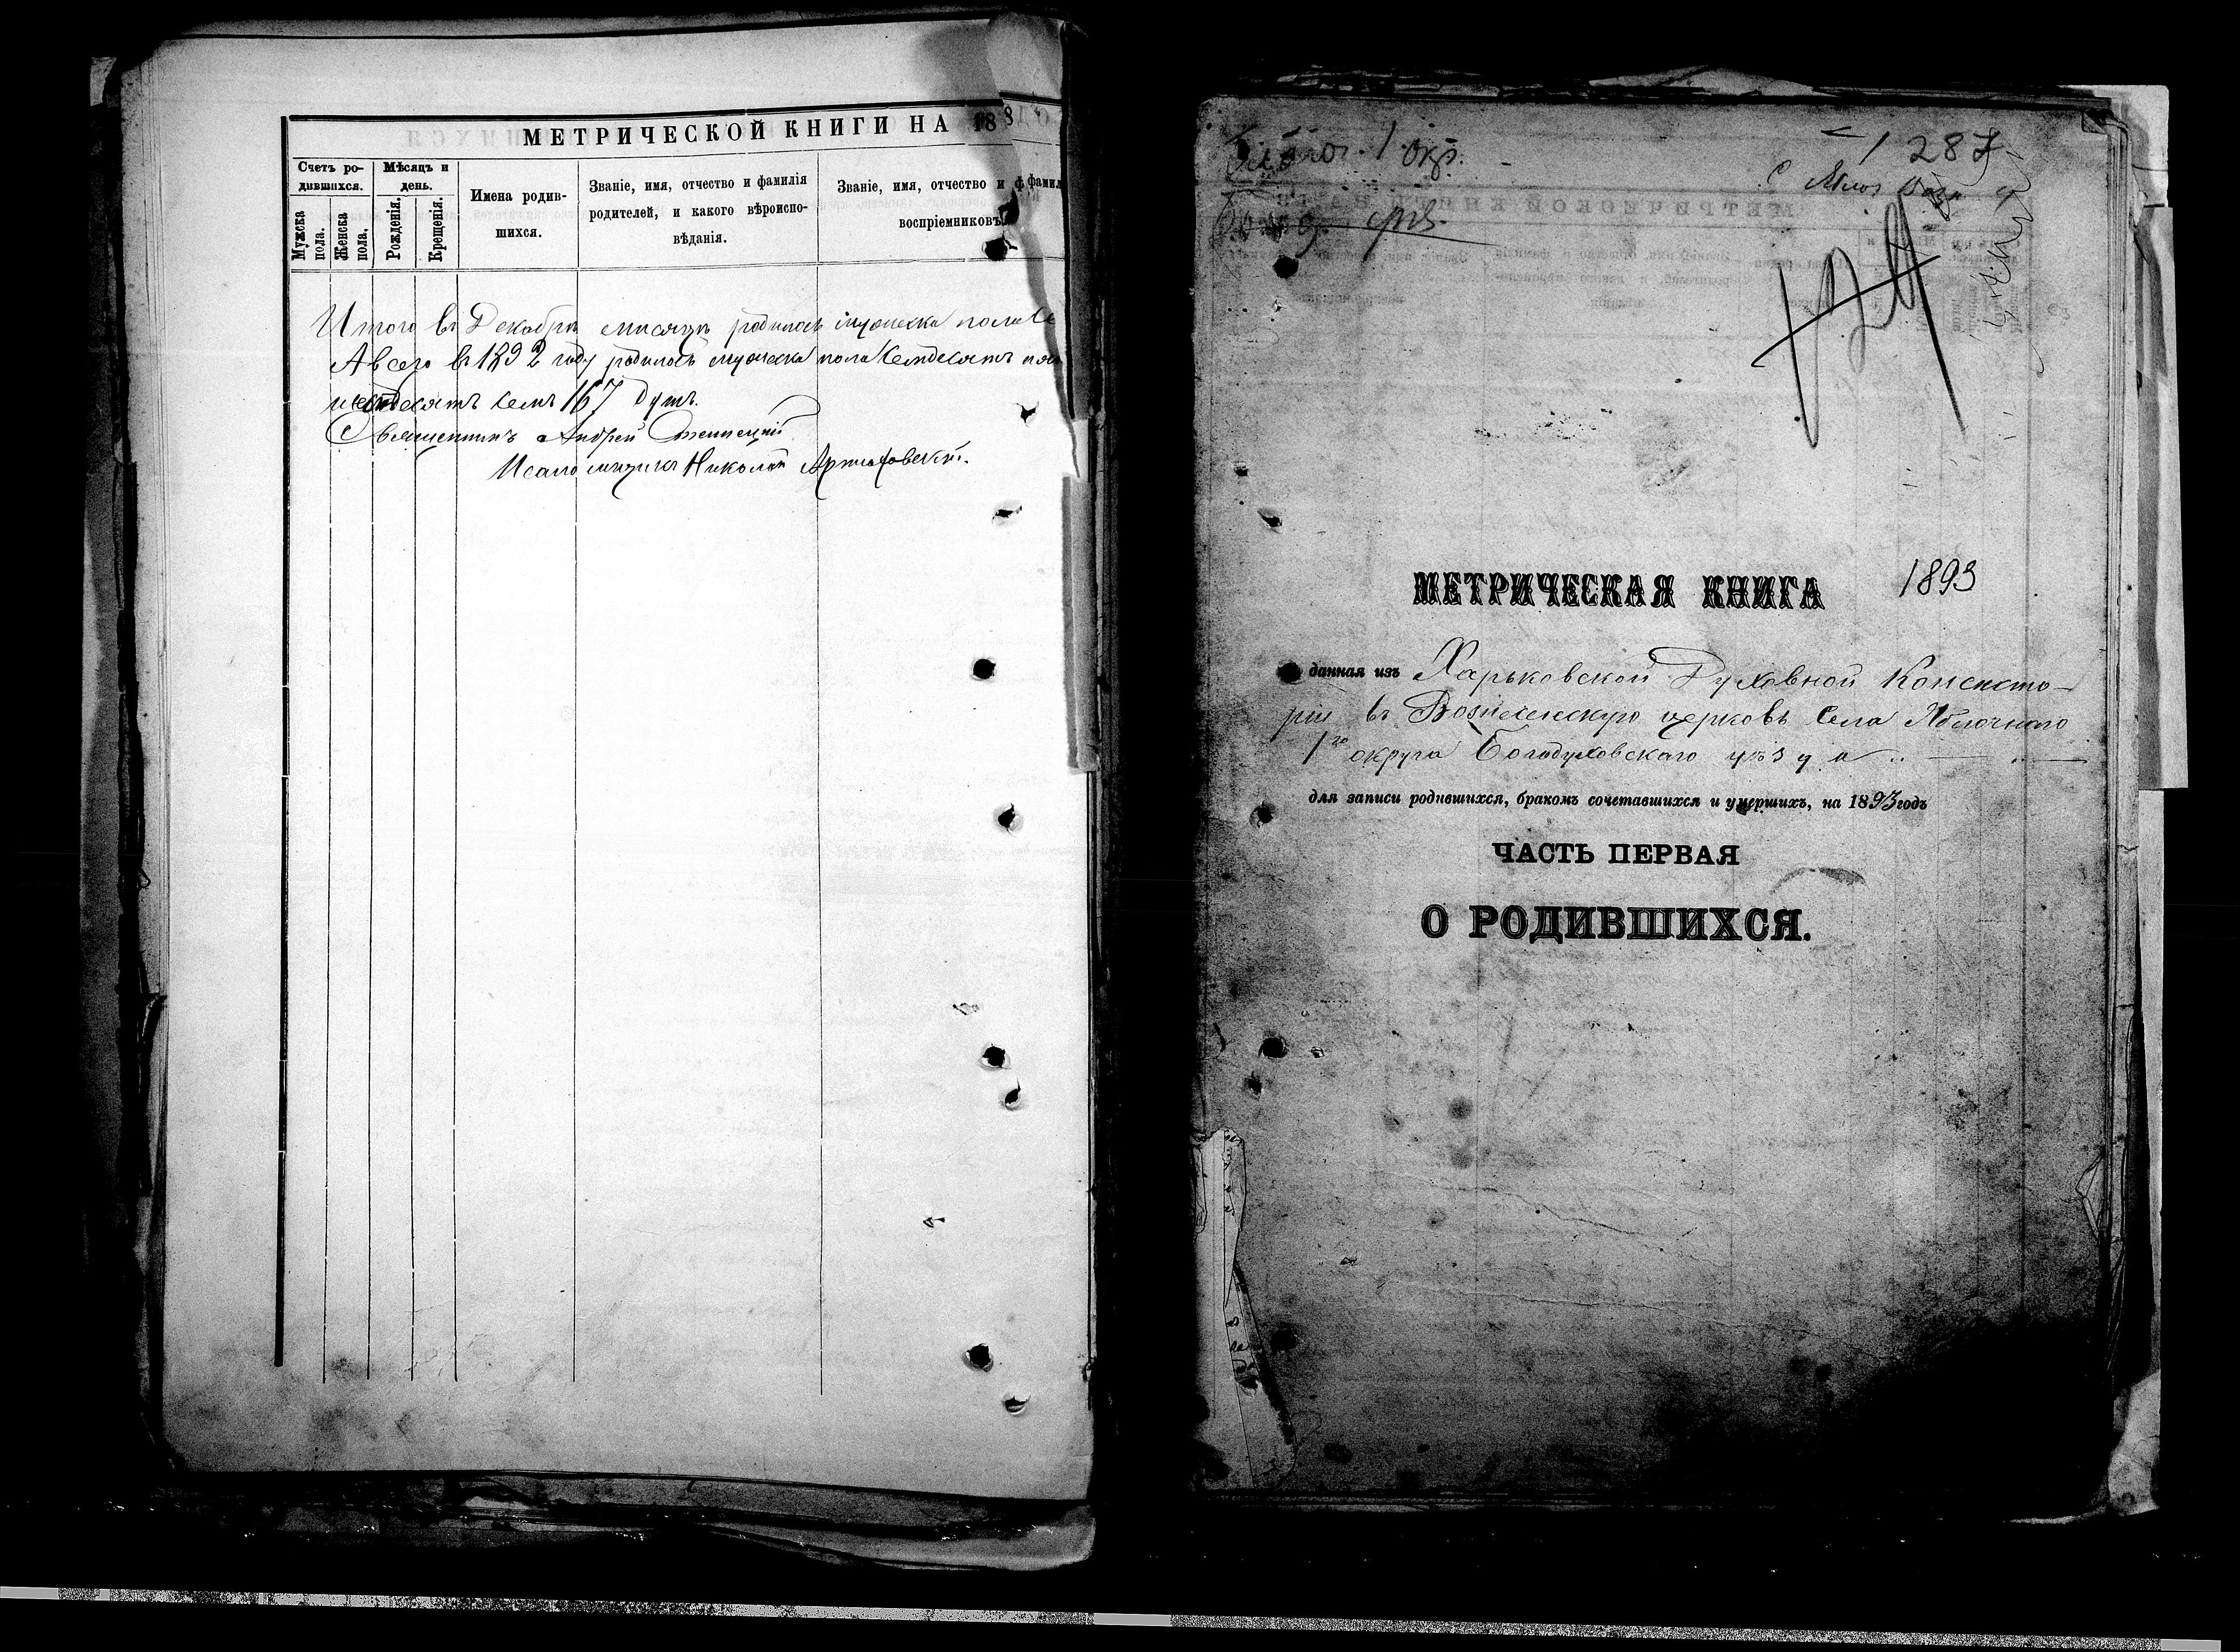 МЕТРИЧЕСКОЙ КНИГИ НА 188
Счетъ ро-
дившихся.
Мѣсяцъ и
день.
Мужска
пола.
Женска
пола.
Рожденія.
Крещенія.
Имена родив-
шихся.
Званіе, имя, отчество и фамилія
родителей, и какого вѣроиспо-
вѣданія.
Званіе, имя, отчество и
воспріемниковъ
Итого въ Декабрѣ мѣсяцѣ родилось мужеска пола
А всего въ 1892 году родилось мужеска пола семдесятъ
шестдесятъ семь 167 душъ.
Священникъ Андрей
Псаломщикъ Николай
1 Окр.
287
1893
МЕТРИЧЕСКАЯ КНИГА
данная изъ Харьковской Духовной Консисто-
ріи въ Вознесенскую церковь села Яблочнаго
1го округа Богодуховскаго уѣзда
для записи родившихся, бракомъ сочетавшихся и умершихъ, на 1893 годъ
ЧАСТЬ ПЕРВАЯ
О РОДИВШИХСЯ.